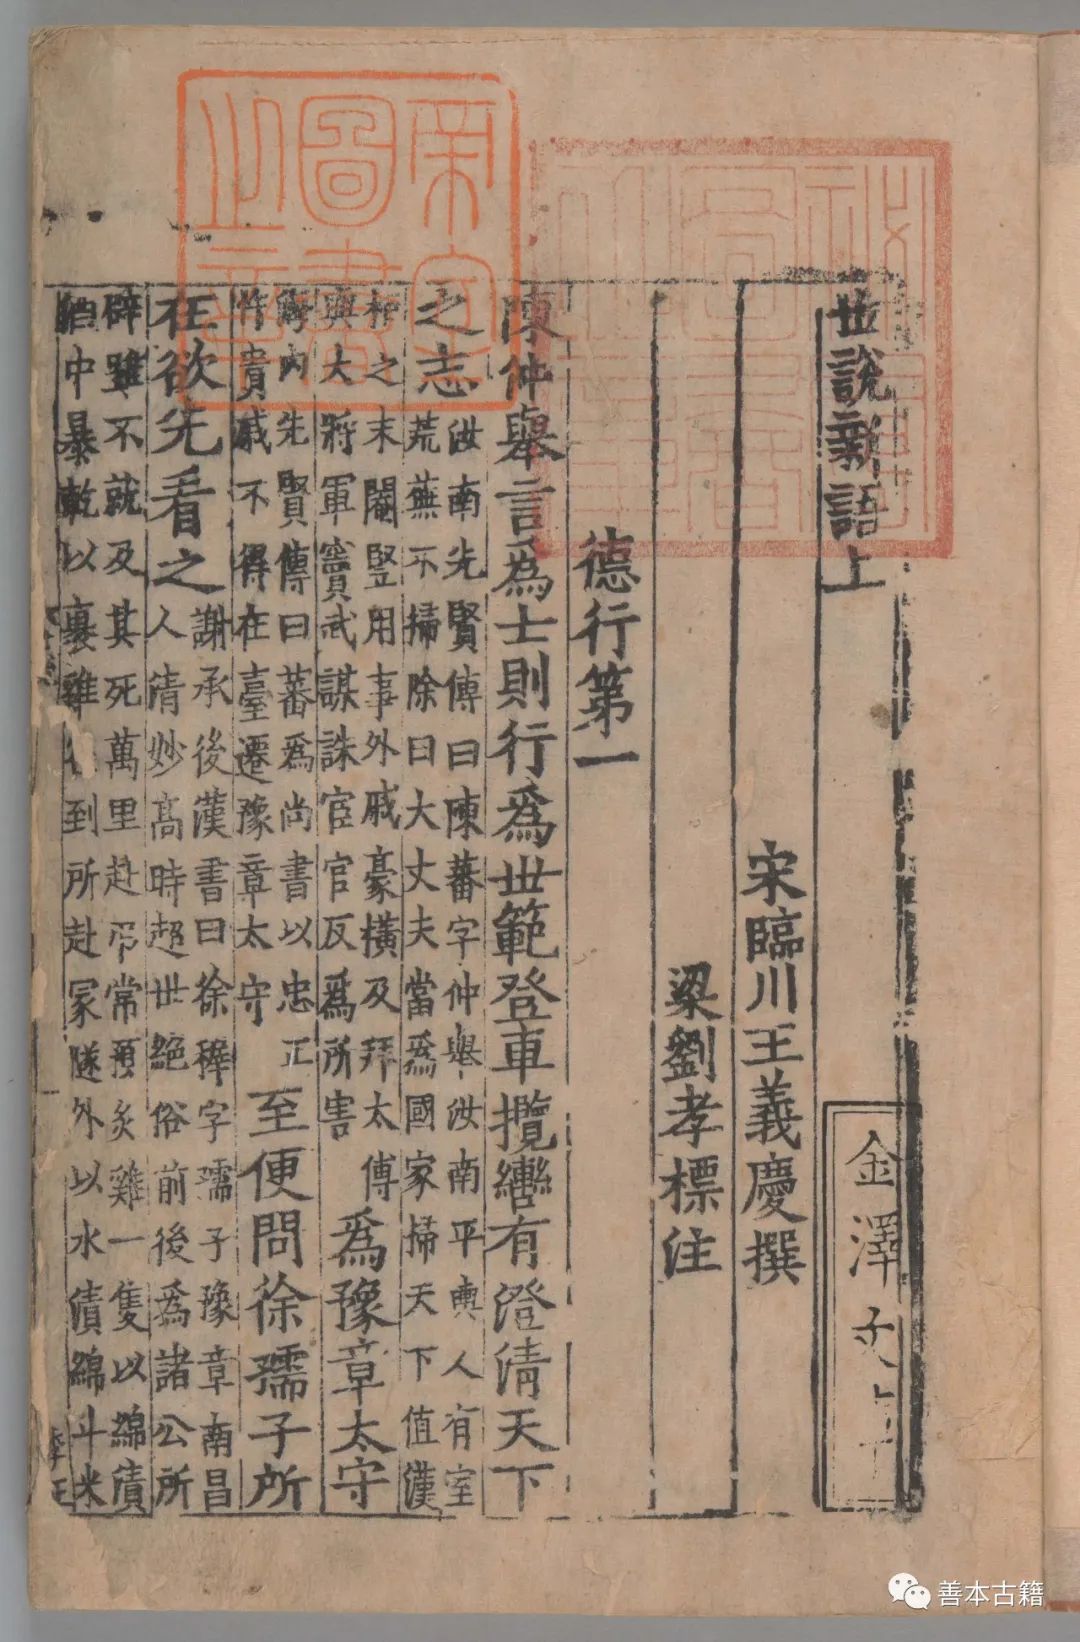 帝室
圖書
之章
祕閣
圖書
之章
世說新語上
金澤文
宋臨川王義慶撰
梁劉孝標注
德行第一
陳仲舉言爲士則行爲世範登車攬轡有澄清天下
之志
汝南先賢傳曰陳蕃字仲舉汝南平輿人有室
荒蕪不掃除曰大丈夫當爲國家掃天下值漢
桓之末閹豎用事外戚豪橫及拜太傅
與大將軍竇武謀誅宦官反爲所害
爲豫章太守
海內先賢傳曰蕃爲尚書以忠正
忤貴戚不得在臺遷豫章太守
至便問徐孺子所
在欲先看之
謝承後漢書曰徐穉字孺子豫章南昌
人清妙高時超世絕俗前後爲諸公所
辟雖不就及其死萬里赴弔常預炙雞一隻以綿漬
酒中暴乾以裹雞徑到所赴冢隧外以水漬綿斗米
善本古籍